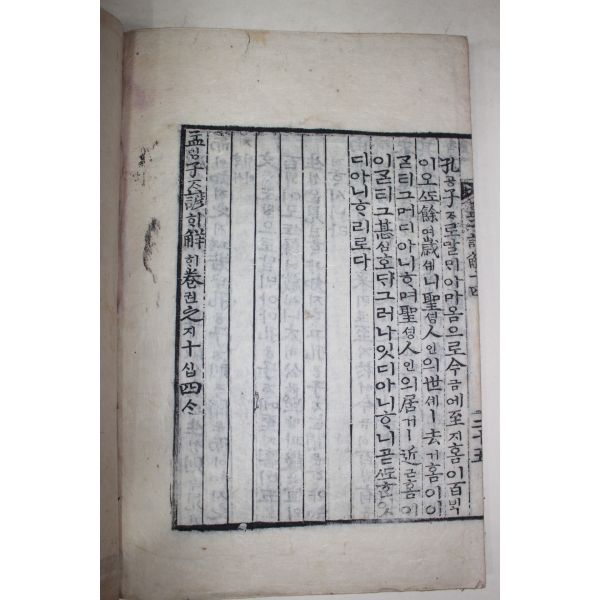 孔공子ᄌᆞ로말ᄆᆡ아마옴으로今금에至지홈이百ᄇᆡᆨ
이오ᄯᅩ餘여歲셰니聖셩人인의世셰ㅣ去거홈이이
ᄀᆞᆮ티그머디아니ᄒᆞ며聖셩人인의居거ㅣ近근홈이
이ᄀᆞᆮ티그甚심호ᄃᆡ그러나잇디아니ᄒᆞ니곧ᄯᅩᄒᆞᆫ잇
디아니ᄒᆞ리로다
孟ᄆᆡᆼ子ᄌᆞ諺언解ᄒᆡ卷권之지十십四ᄉᆞ